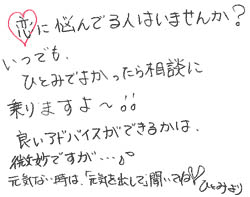 恋に悩んでる人はいませんか?
いつでも、
ひとみでよかったら相談に
乗りますよ〜♪♪
良いアドバイスができるかは、
微妙ですが…♪
元気ない時は、「元気を出して」聞いてね♡
ひとみより